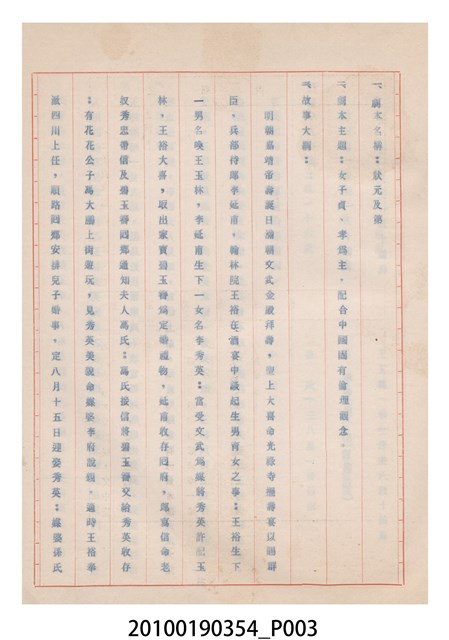 一、劇本名稱：狀元及第
二、劇本主題：女子貞、孝為主，配合中國固有倫理觀念。
三、故事大綱：
明朝嘉靖帝壽誕日滿朝文武金殿拜壽，聖上大喜命光祿寺擺壽宴以賜群
臣，兵部侍郎李延甫，翰林院王裕在酒宴中談起生男育女之事；王裕生下
一男名喚王玉林，李延甫生下一女名李秀英；當受文武為媒將秀英許配玉
林，王裕大喜，取出家寶碧玉簪為定婚禮物，延甫收存回府，寫寫信命老
奴秀忠帶信及碧玉簪回鄉通知夫人馮氏；馮氏接信將碧玉簪交給秀英收存
；有花花公子馬大鵬上街遊玩，見秀英美貌命媒婆李府說親，適時王裕奉
派四川上任，順路回鄉安排兒子婚事，定八月十五日迎娶秀英；媒婆孫氏
20100190354_P003